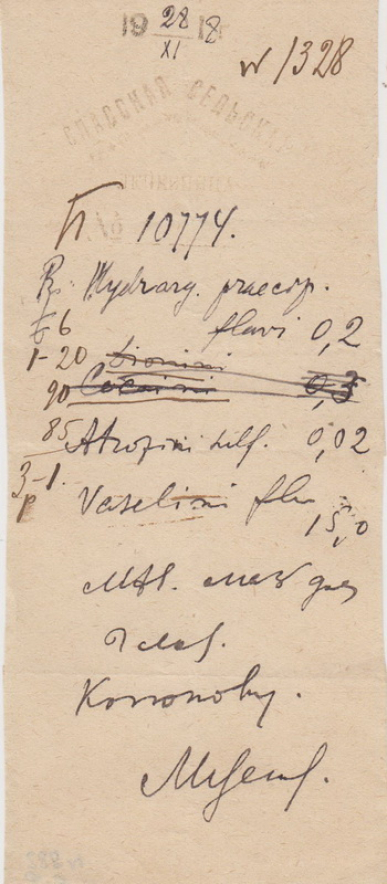 19 28/XI 18
№ 1328
СПАССКАЯ СЕЛЬСКАЯ
ЛЕЧЕБНИЦА
№ 10774.
Rp: Hydrarg. praecip.
6 flavi 0,2
1-20 Dionini
90 Cocaini 0,3
85 Atropini sulf. 0,02
3-1.
р
Vaselini flav
15,0
MDS. мазь для
глаз.